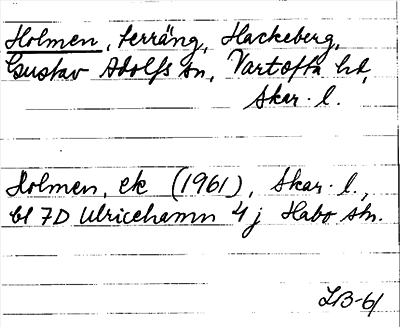 Holmen, terräng, Hackeberg,
Gustav Adolfs sn, Vartofta hd,
Skar. l.
Holmen, ek (1961), Skar. l.,
bl 7D Ulricehamn 4j Habo sn.
LB-61